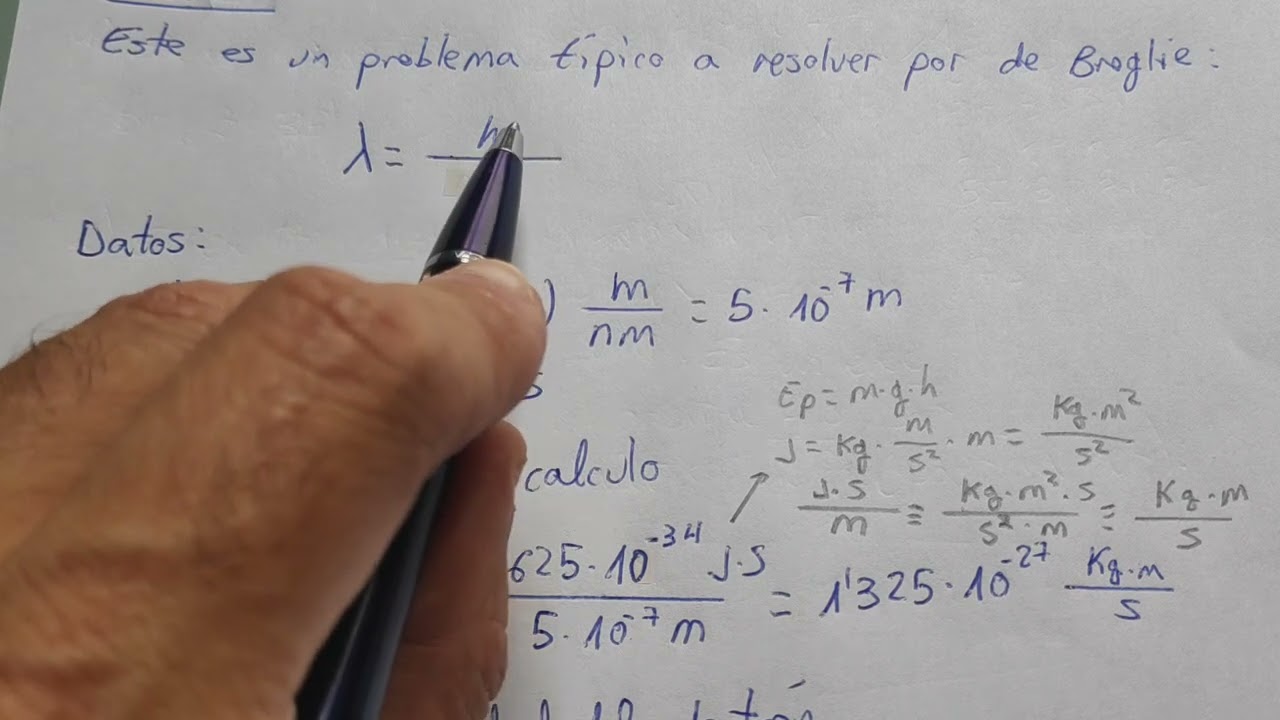 Este es un problema típico a resolver por de Broglie:
λ = h
Datos:
) m/nm = 5·10⁻⁷ m
Ep = m·g·h
J = Kg · m/s² · m = Kg·m²/s²
calculo
J·s/m ≡ Kg·m²·s/s²·m ≡ Kg·m/s
625·10⁻³⁴ J·s / 5·10⁻⁷ m = 1'325·10⁻²⁷ Kg·m/s